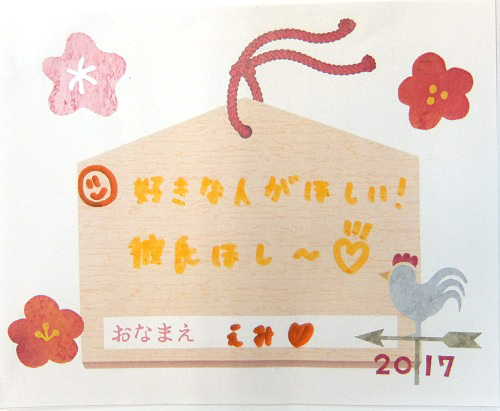 好きな人がほしい!
彼氏ほし～
おなまえ えみ
2017